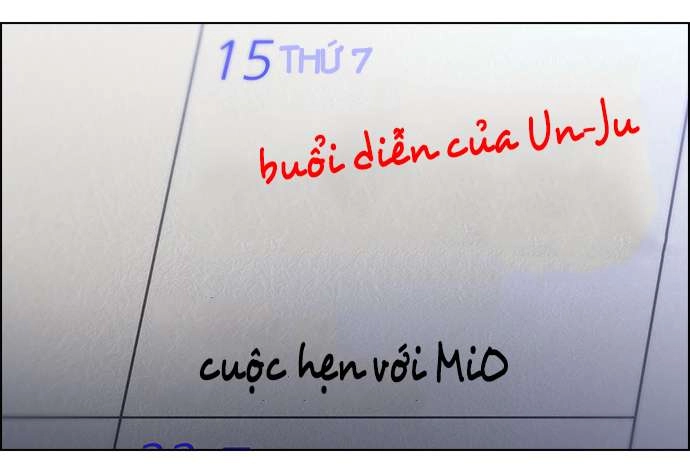 15 THỨ 7
buổi diễn của Un-Ju
cuộc hẹn với MiO